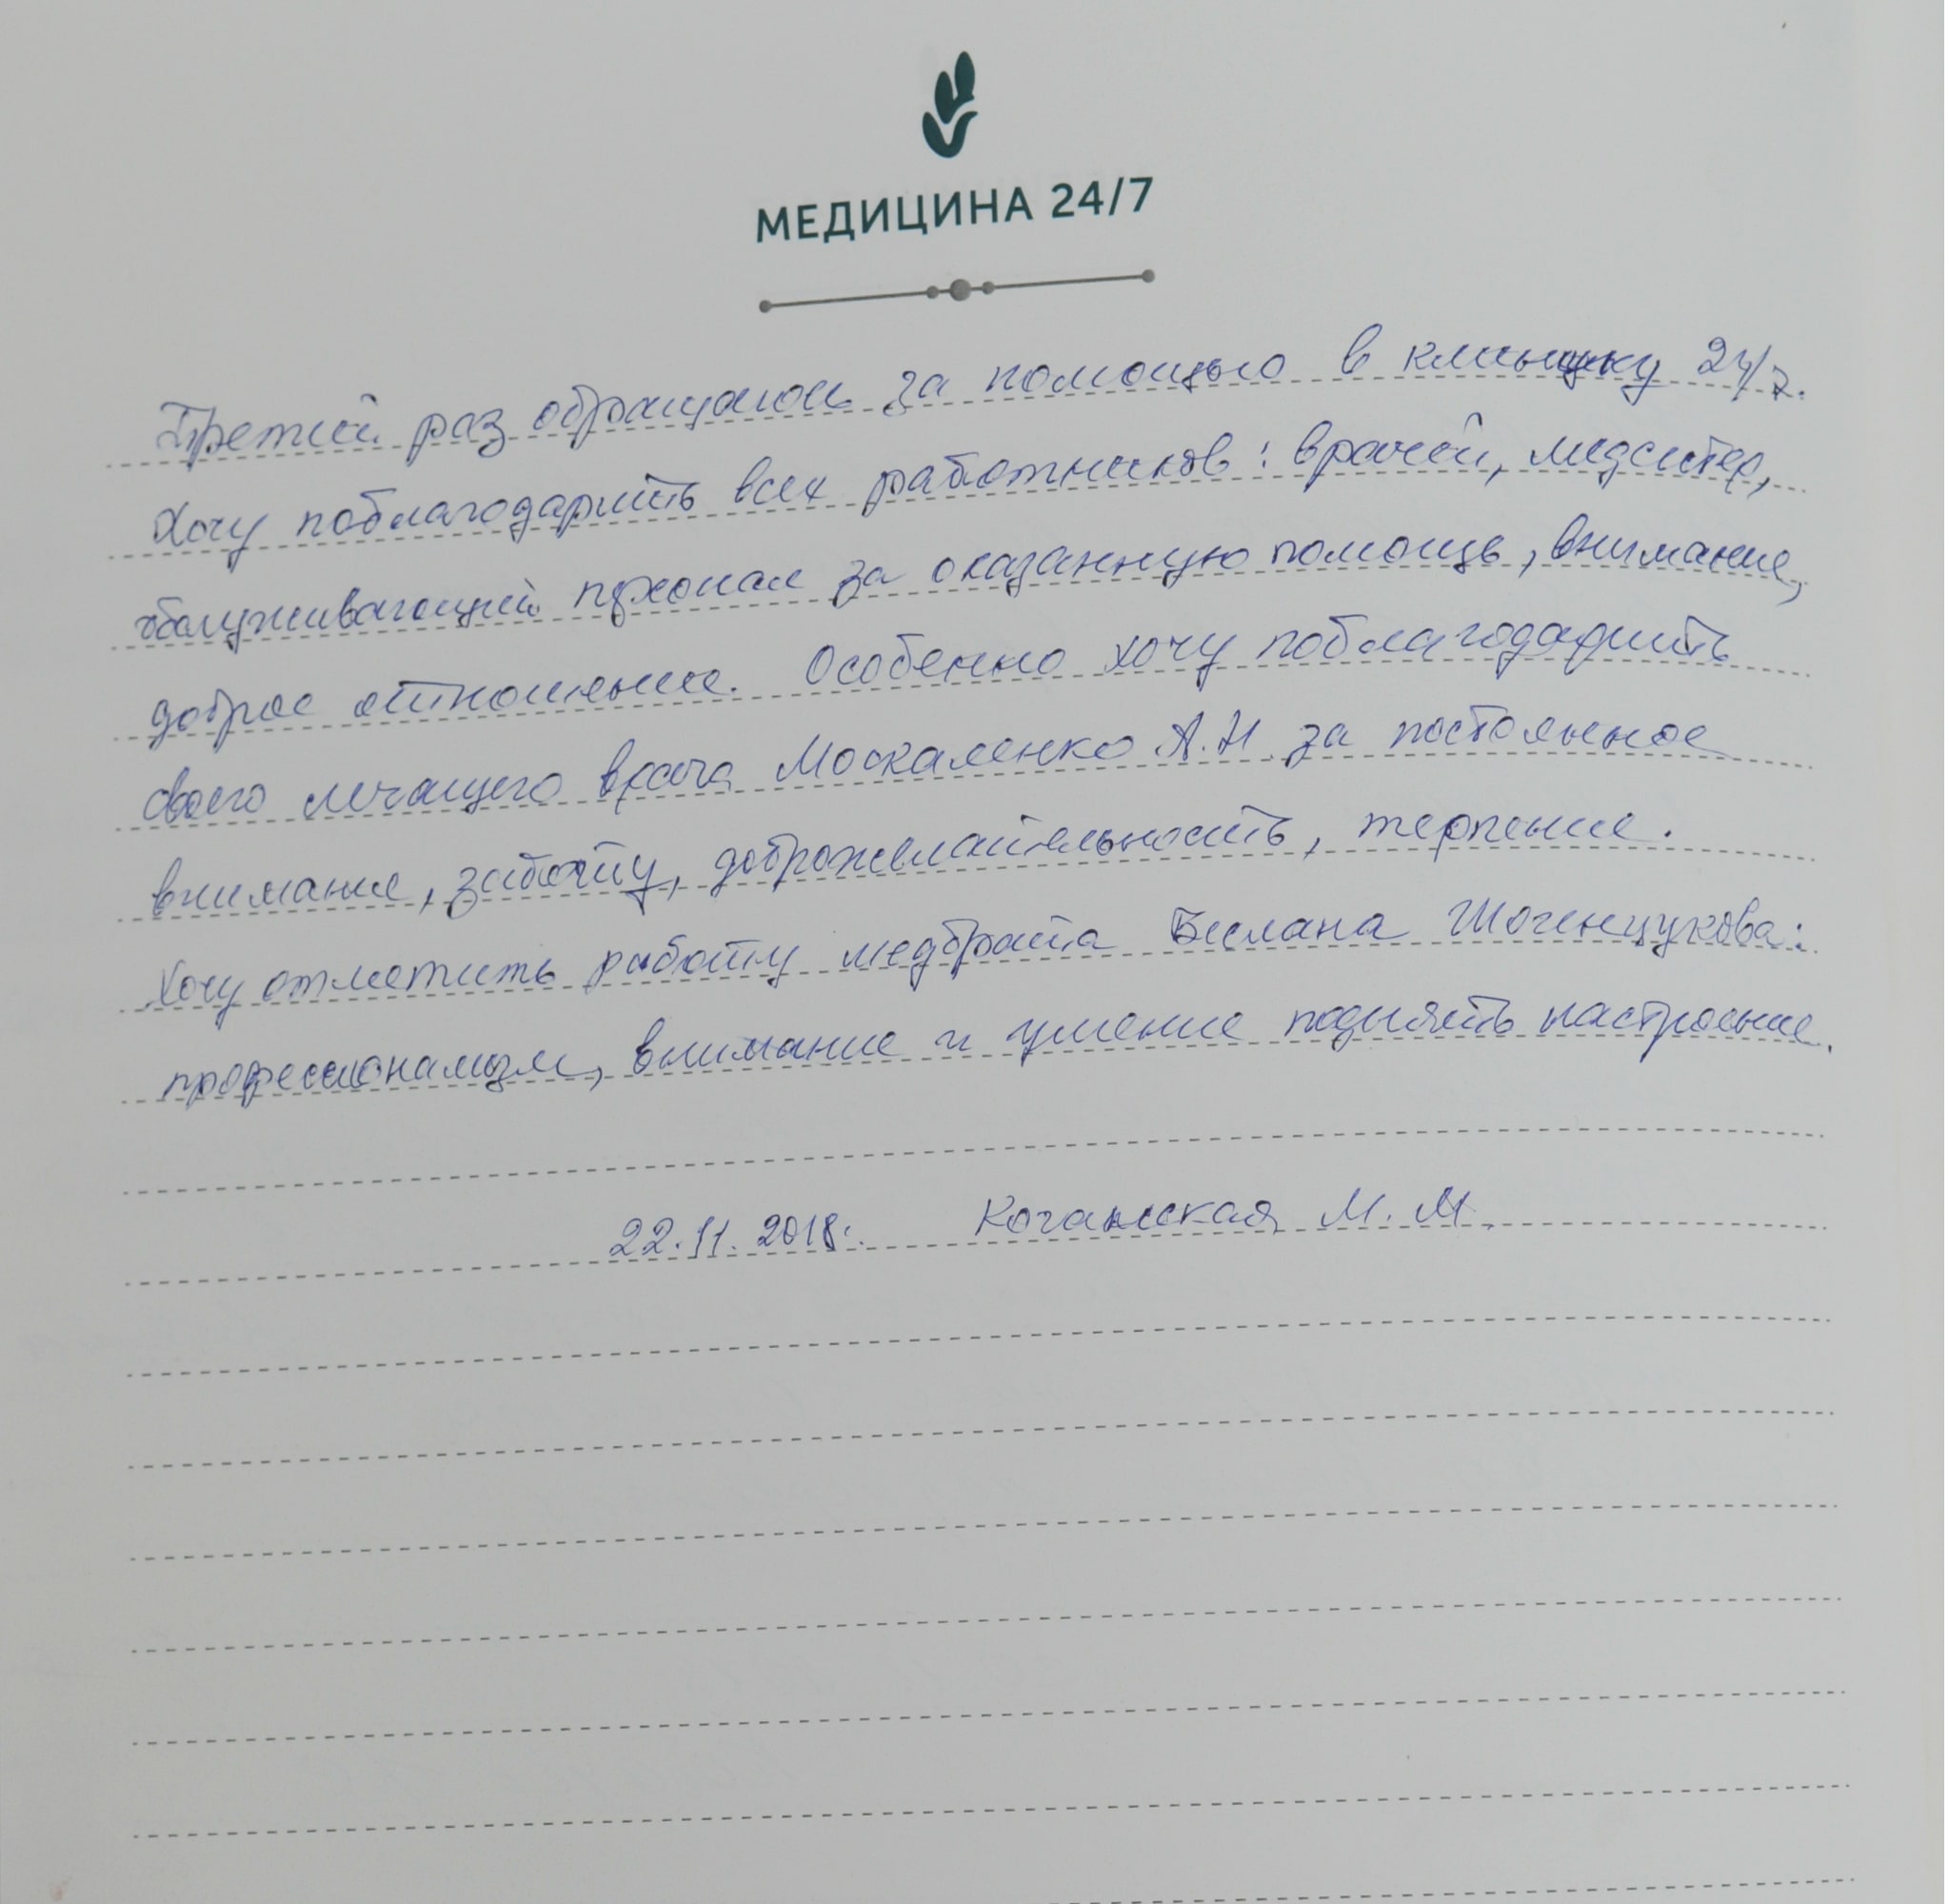 МЕДИЦИНА 24/7
Третий раз обращаюсь за помощью в клинику 24/7.
Хочу поблагодарить всех работников: врачей, медсестер,
обслуживающий персонал за оказанную помощь, внимание,
доброе отношение. Особенно хочу поблагодарить
своего лечащего врача Москаленко А.Н. за постоянное
внимание, заботу, доброжелательность, терпение.
Хочу отметить работу медбрата Беслана Шогенцукова:
профессионализм, внимание и умение поднять настроение.
22.11.2018г. М.М.